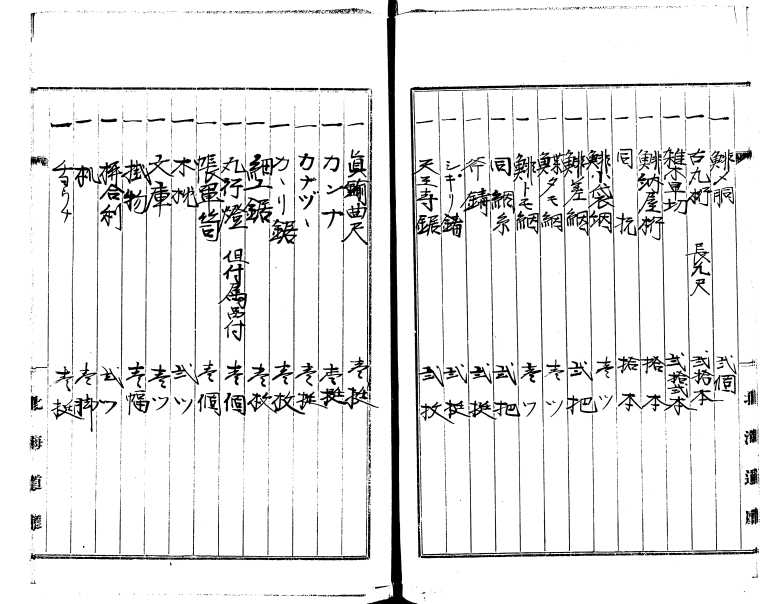 一 鯡〆胴 弐個
一 古九桁 長九尺 弐拾本
一 雑木早切 弐拾弐本
一 鯡納屋桁 拾本
一 同 杭 拾本
一 鯡小袋網 壱ツ
一 鯡差網 弐把
一 鰈タモ網 壱ツ
一 鯡トモ網 壱ツ
一 同網糸 弐把
一 斧鋳 弐挺
一 シギリ鋳 弐挺
一 天王寺鋸 弐枚
北海道庁
一 真鍮曲尺 壱挺
一 カンナ 壱挺
一 カナヅヽ 壱挺
一 カヽリ鋸 壱枚
一 細工鋸 壱枚
一 丸行燈 但付属品付 壱個
一 帳箪笥 壱個
一 木挽 弐ツ
一 文庫 壱ツ
一 掛物 壱幅
一 桝合利 弐ツ
一 机 壱脚
一 壱挺
北海道庁